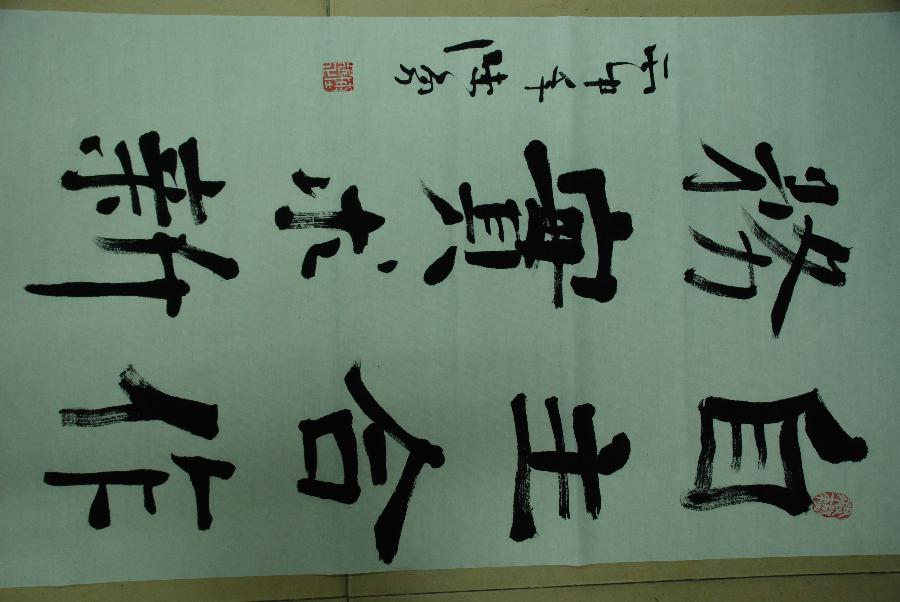 自主合作
務實求新
丙申年